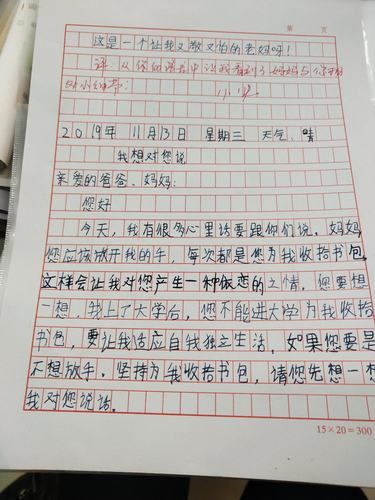 第 页
这是一个让我又敬又怕的老妈呀!
评:从你的语言中让我看到了妈妈与你
2019年 11月13日 星期三 天气:晴
我想对您说
亲爱的爸爸、妈妈:
您好
今天,我有很多心里话要跟你们说。妈妈
您应该放开我的手,每次都是您为我收拾书包
这样会让我对您产生一种依恋的之情,您要想
一想,我上了大学后,您不能进大学为我收拾
书包,要让我适应自我独立生活。如果您要是
不想放手。坚持为我收拾书包,请您先想一想
我对您说话。
15×20=300